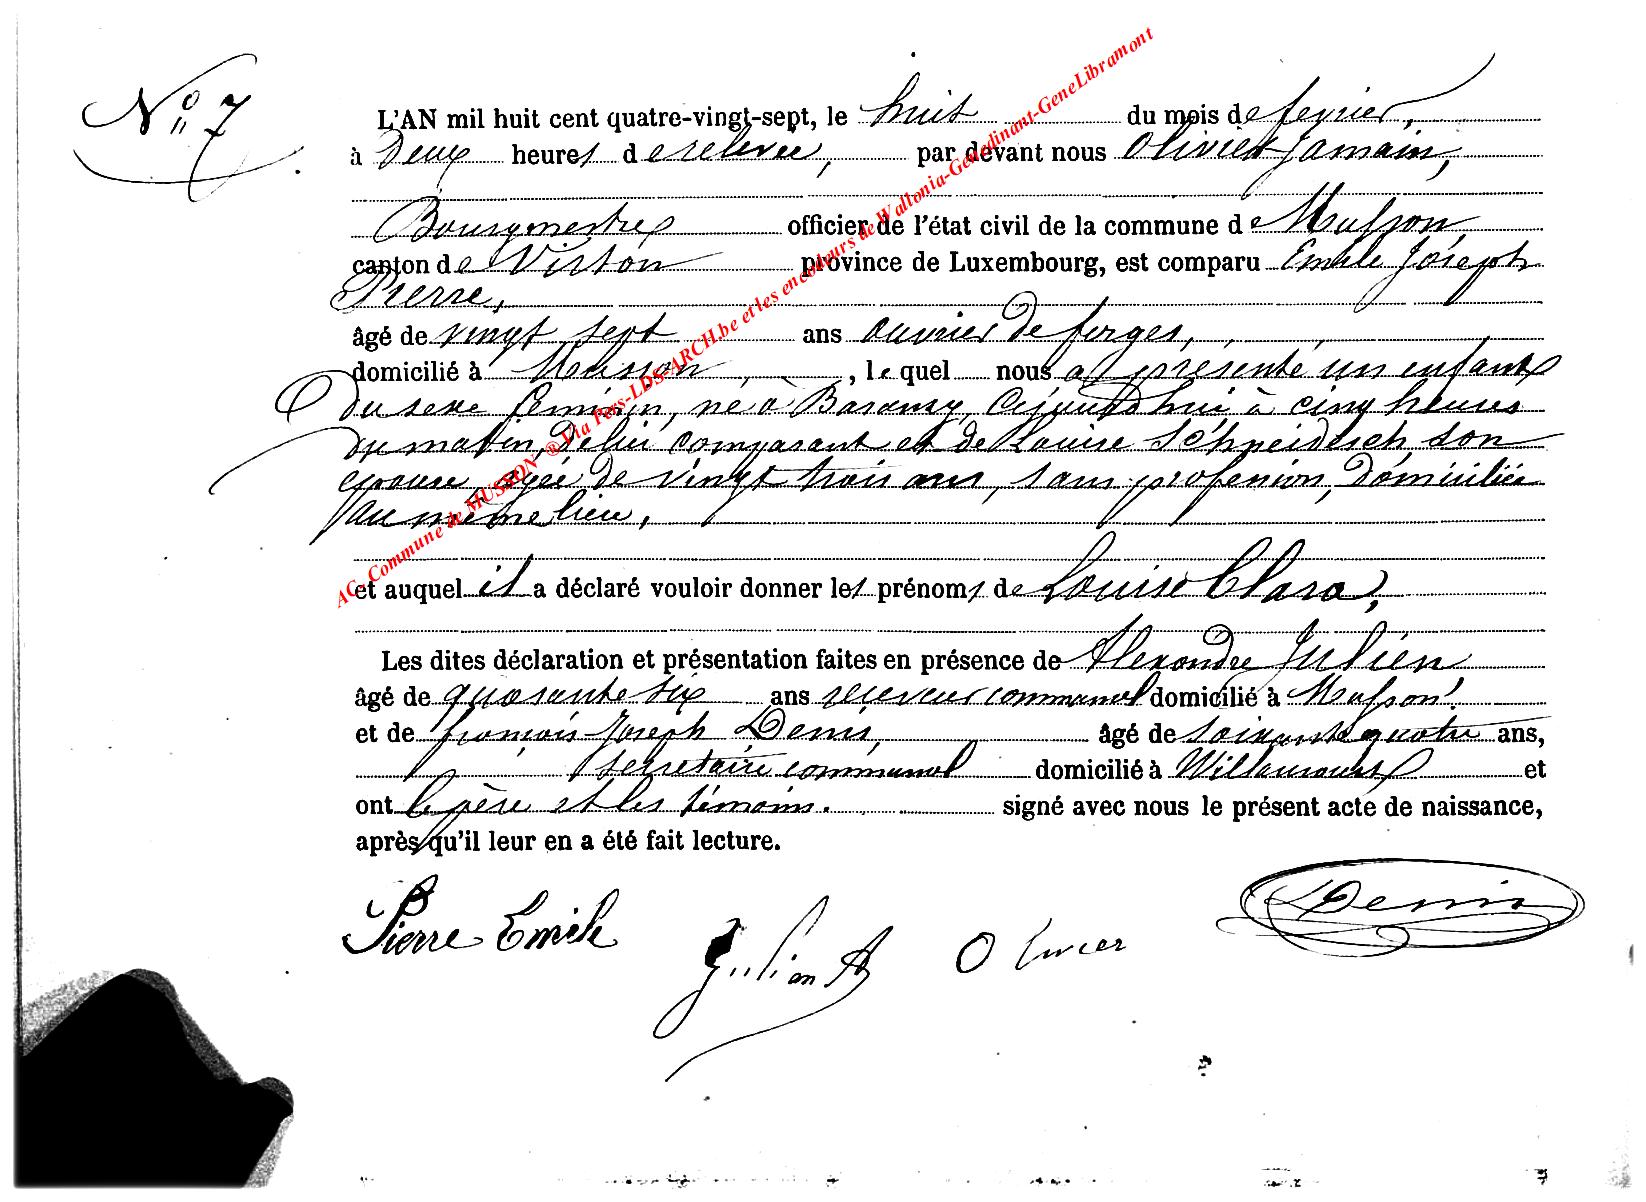 N° 7
L'AN mil huit cent quatre-vingt-sept, le huit du mois de fevrier,
à Deux heures de relevée, par devant nous Olivier Jamain,
Bourgmestre officier de l'état civil de la commune de Musson
canton de Virton province de Luxembourg, est comparu Emile Joseph
Pierre,
âgé de vingt sept ans ouvrier de forges,
domicilié à Musson, le quel nous a présenté un enfant
du sexe féminin, né à Baranzy, cejourd'hui à cinq heures
du matin, de lui comparant et de Louise Schneidesch son
épouse, agée de vingt trois ans, sans profession, domiciliée
au même lieu,
et auquel il a déclaré vouloir donner les prénoms de Louise Clara,
Les dites déclaration et présentation faites en présence de Alexandre Julien
âgé de quarante six ans receveur communal domicilié à Musson
et de françois Joseph Denis, âgé de soixante quatre ans,
secretaire communal domicilié à Willancourt et
ont le père et les témoins. signé avec nous le présent acte de naissance,
après qu'il leur en a été fait lecture.
Pierre Emile Julien A Denis
AC Commune de MUSSON ® Via Pers-LDS-ARCH.be et les encodeurs de Wallonia-Genedinant-GeneLibramont